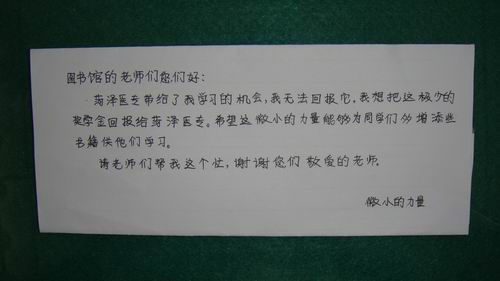 图书馆的老师们您们好:
菏泽医专带给了我学习的机会,我无法回报它。我想把这极少的
奖学金回报给菏泽医专。希望这微小的力量能够为同学们多增添些
书籍供他们学习。
请老师们帮我这个忙,谢谢您们 敬爱的老师。
微小的力量